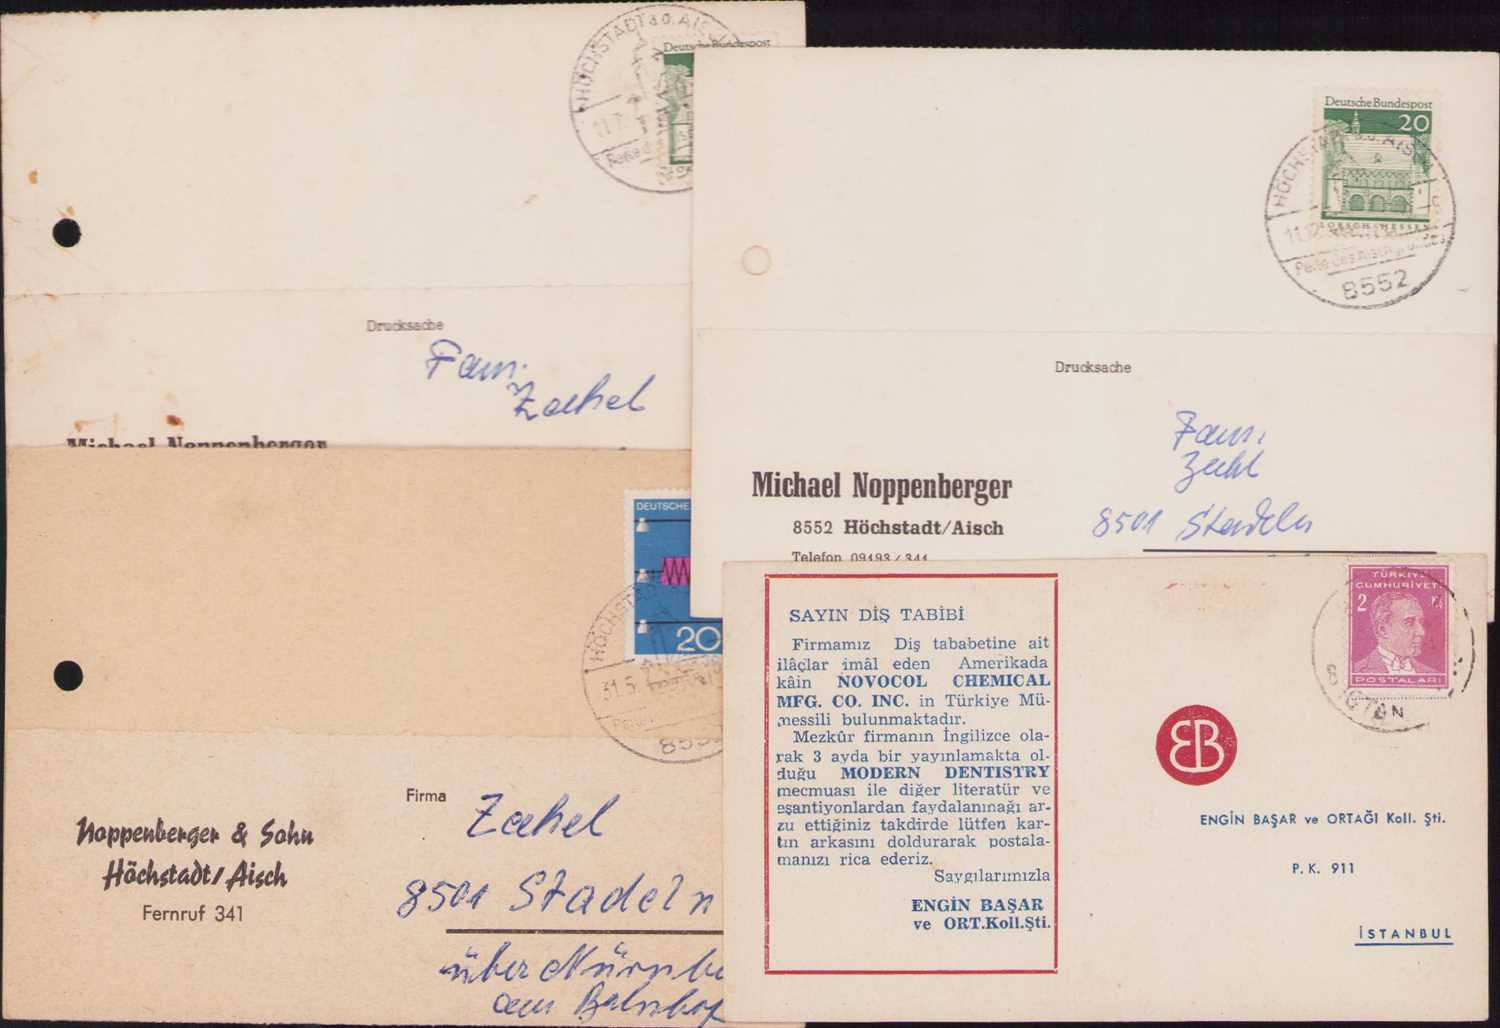 HÖCHSTADT a.d. AISCH
Deutsche Bundespost
11.7.
Perle des
Drucksache
Fam.
Zahel
Michael Noppenberger
DEUTSCHE
20
HÖCHSTADT
31.5.
8552
Firma
Zahel
Noppenberger & Sohn
Höchstadt/Aisch
Fernruf 341
8501 Stadeln
über Nürnbe
am Bahnhof
Deutsche Bundespost
20
LORSCH · HESSEN
11.12.
Perle des Aischgrundes
8552
Drucksache
Fam.
Zahl
Michael Noppenberger
8552 Höchstadt/Aisch
Telefon 09193/341
8501 Stadeln
SAYIN DİŞ TABİBİ
Firmamız Diş tababetine ait
ilâçlar imâl eden Amerikada
kâin NOVOCOL CHEMICAL
MFG. CO. INC. in Türkiye Mü-
messili bulunmaktadır.
Mezkûr firmanın İngilizce ola-
rak 3 ayda bir yayınlamakta ol-
duğu MODERN DENTISTRY
mecmuası ile diğer literatür ve
eşantiyonlardan faydalanmağı ar-
zu ettiğiniz takdirde lütfen kar-
tın arkasını doldurarak postala-
manızı rica ederiz.
Saygılarımızla
ENGİN BAŞAR
ve ORT.Koll.Şti.
TÜRKİYE
CUMHURİYETİ
2
POSTALARI
EB
ENGİN BAŞAR ve ORTAĞI Koll. Şti.
P. K. 911
İSTANBUL